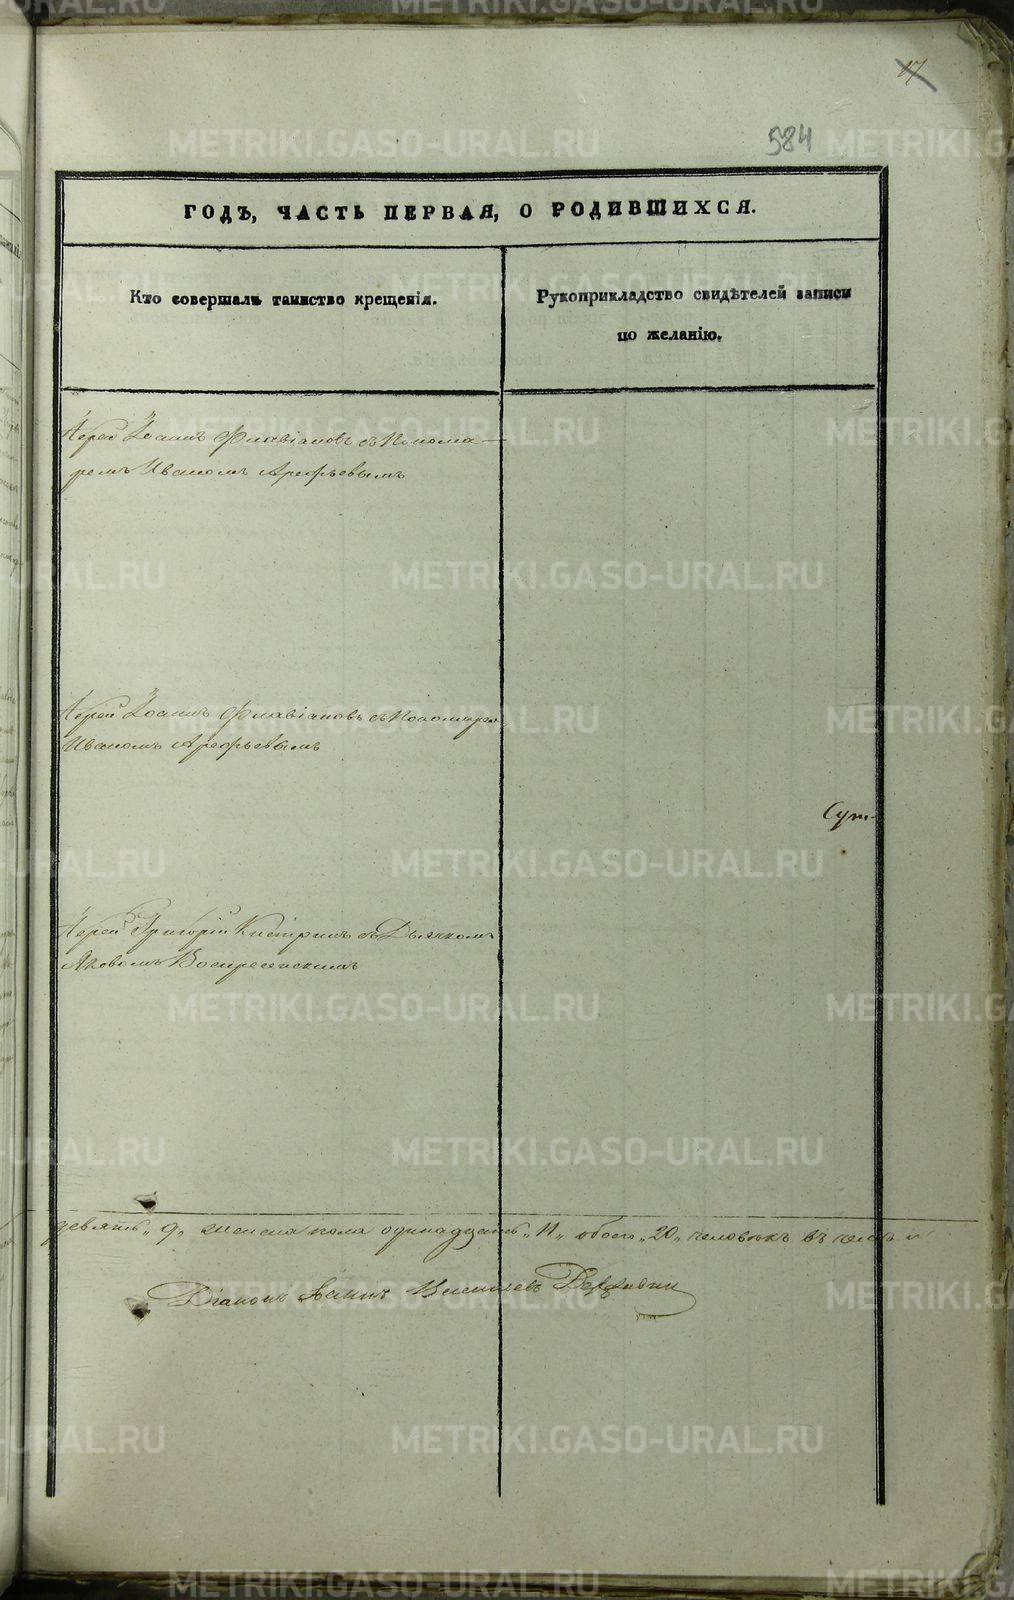 17
584
ГОДЪ, ЧАСТЬ ПЕРВАЯ, О РОДИВШИХСЯ.
Кто совершалъ таинство крещенія.
Рукоприкладство свидѣтелей записи
по желанію.
Іерей Іоаннъ Флавіановъ съ Понома-
ремъ Иваномъ Арефьевымъ
Іерей Іоаннъ Флавіановъ съ Пономарем
Иваномъ Арефьевымъ
Іерей Григорій съ Дьячкомъ
Яковомъ Воскресенскимъ
девять „9„ женска пола одинадцать „11„ обоего „20„ человѣкъ
Діаконъ Іоаннъ
METRIKI.GASO-URAL.RU